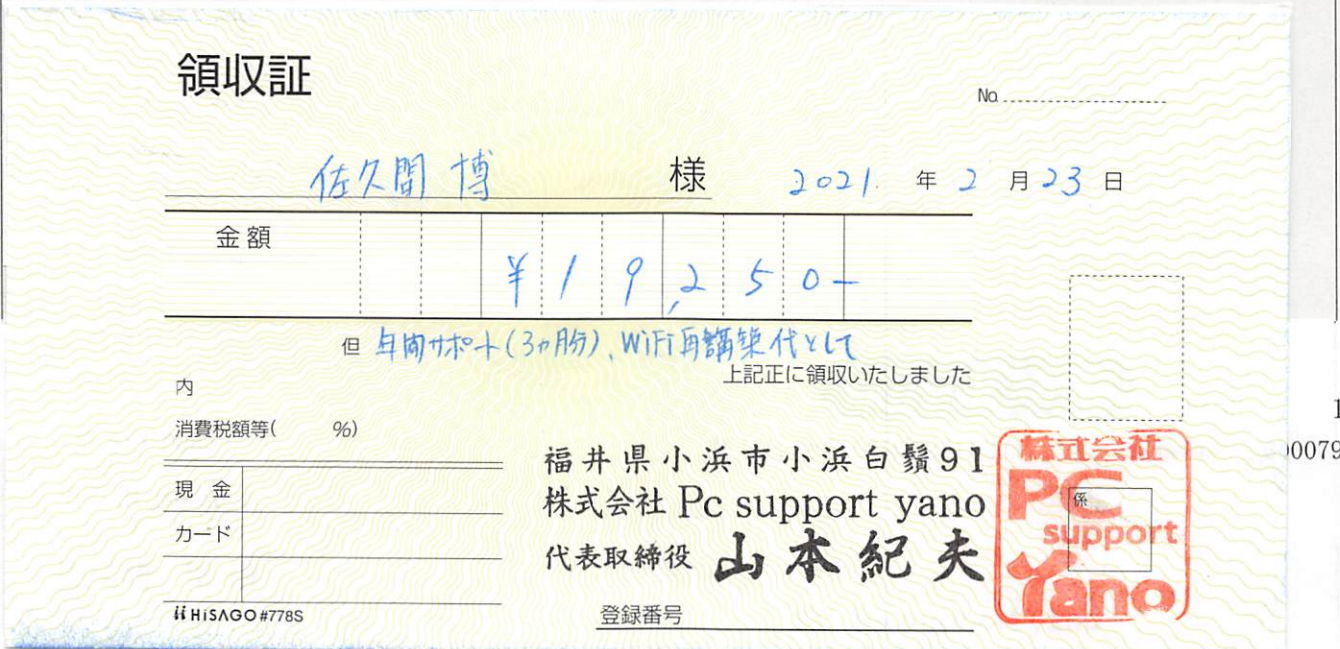 領収証
No.
佐久間 博 様 2021. 年 2 月 23 日
金額 ¥19,250-
但 年間サポート(3ヵ月分)、WiFi再構築代として
上記正に領収いたしました
内
消費税額等( %)
現 金
カード
HiSAGO #778S
福井県小浜市小浜白鬚91
株式会社 Pc support yano
代表取締役 山本紀夫
登録番号
株式会社
PC
support
Yano
係
1
00079